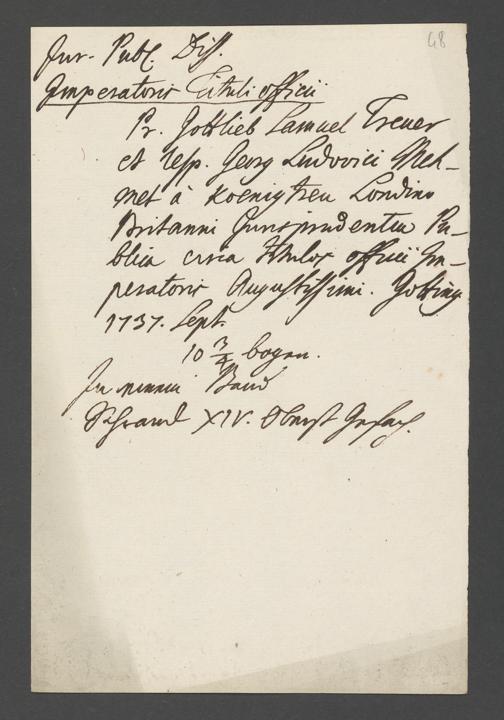 48
Jur. Publ. Diss.
Imperatoris Tituli officii
Pr. Gottlieb Samuel Treuer
et resp. Georg Ludovici Meh-
met à Koenigtreu Londino
Britanni Jurisprudentia Pu-
blica circa titulos officii Im-
peratoris Augustissimi. Gotting.
1737. Sept.
10 3/4 bogen.
In Band
Schranck XIV. Oberst